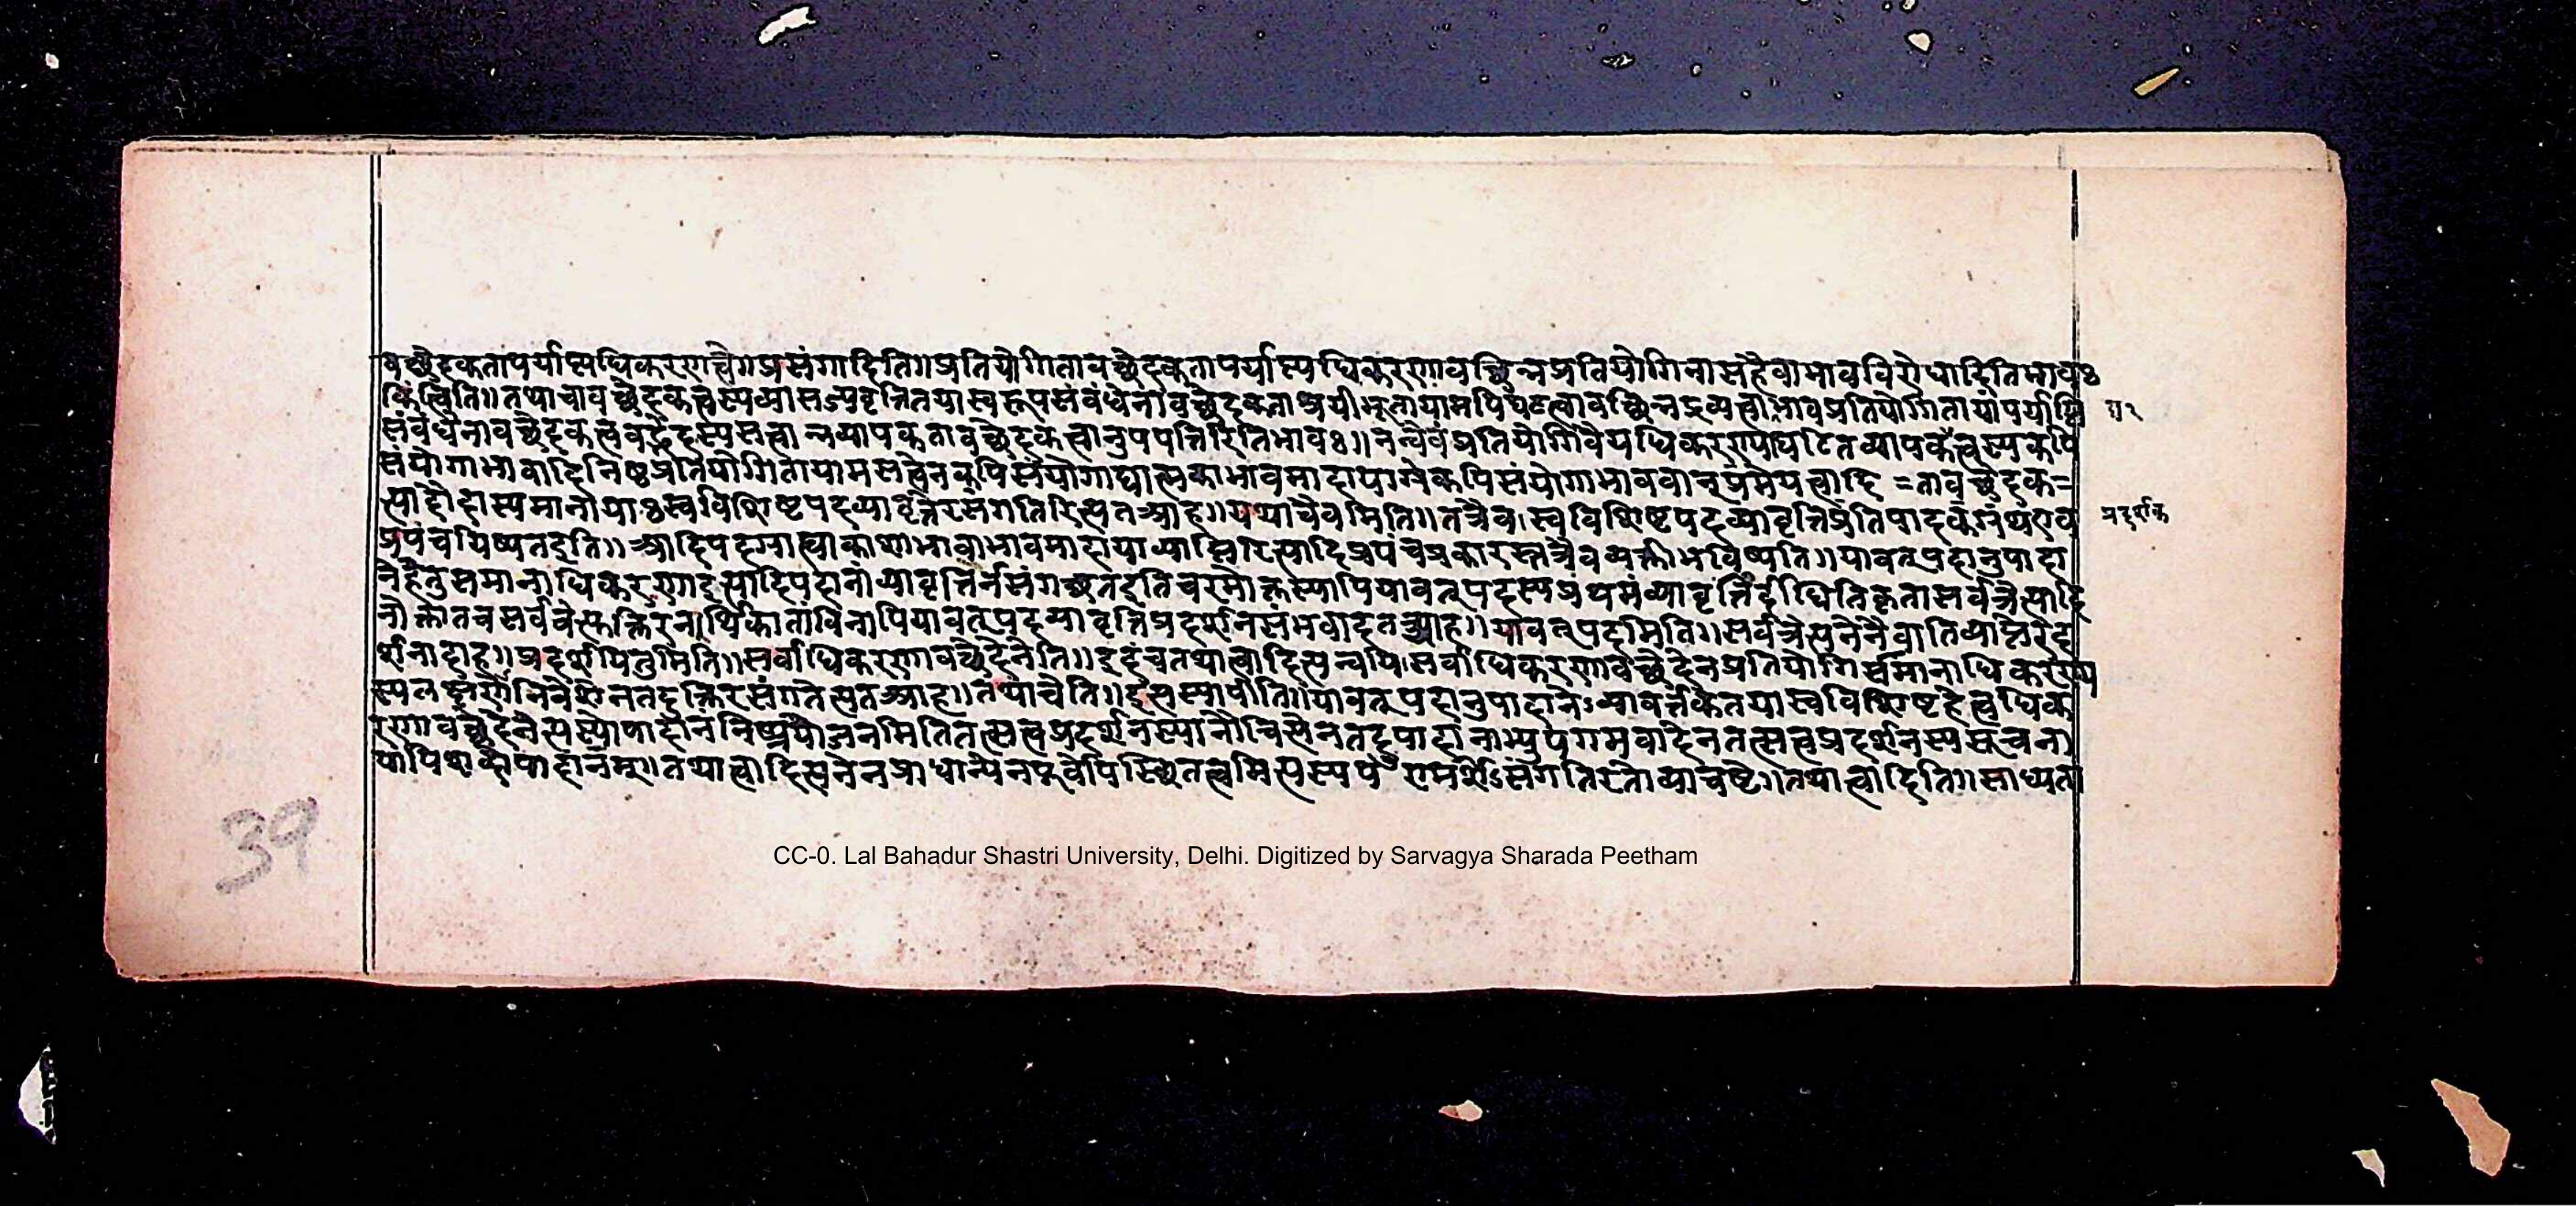 वच्छेदकतापर्याप्त्यधिकरणाच्चै॥प्रसंगादिति॥प्रतियोगितावच्छेदकतापर्याप्त्यधिकरणावच्छिन्नप्रतियोगिनासहैवाभावविरोधादितिभावः
किंत्विति॥तथाचावच्छेदकत्वस्यव्यासज्यवृत्तितयास्वरूपसंबंधेनावच्छेदकताश्रयीभूतायामपिघटत्वावच्छिन्नद्रव्यत्वाभावप्रतियोगितायांपर्याप्ति
संबंधेनावच्छेदकत्ववद्भेदस्यसत्वान्नव्यापकतावच्छेदकत्वानुपपत्तिरितिभावः॥नन्वेवंप्रतियोगिवैयधिकरण्याघटितव्यापकत्वस्यकपि
संयोगाभावादिनिष्ठप्रतियोगितायामसत्वेनकपिसंयोगाद्यात्मकाभावमादायाग्रेकपिसंयोगाभाववान्प्रमेयत्वादि =तावच्छेदक=
त्यादौदास्यमानीयाःस्वविशिष्टपदव्यावृत्तेरसंगतिरित्यतआह॥यथाचैवमिति॥तत्रैव।स्वविशिष्टपदव्यावृत्तिप्रतिपादकग्रंथएव
प्रपंचयिष्यतइति॥आदिपदग्राह्याकाशाभावाभावमादायाव्याप्तिरित्यादिप्रपंचप्रकारस्तत्रैवव्यक्तीभविष्यति॥यावत्पदानुपादा
नेहेतुसमानाधिकरणाइत्यादिपदानांव्यावृत्तिर्नसंगच्छतइतिचरमोक्तस्यापियावत्पदस्यप्रथमंव्यावृत्तिर्दीधितिकृतासर्वत्रैत्यादि
नोक्तातचसर्वत्रैत्सुक्तिरनर्थिकातांविनापियावत्पदव्यावृत्तिप्रदर्शनसंभवादतआह॥यावत्पदमिति॥सर्वत्रैत्यनेनैवातिव्याप्तेरेद
र्शनादाह॥प्रदर्शयितुमिति॥सर्वाधिकरणावच्छेदेनेति॥इदंचतथात्वादित्यन्वयि।सर्वाधिकरणावच्छेदेनप्रतियोगिसमानाधिकरण्य
स्यलक्षणेनिवेशेनतदुक्तिरसंगतेत्यतआह॥तथाचेति॥इत्यस्यापीति॥यावत्पदानुपादानेऽव्यावर्तकतयास्वविशिष्टहेत्वधिक
रणावच्छेदेनेत्यस्योपादानंनिष्प्रयोजनमितितत्सत्वप्रदर्शनस्यानौचित्येनतदुपादानाभ्युपगमवादेनतत्सत्वप्रदर्शनस्यसूचना
यापिशब्दोपादानम्॥तथात्वादित्यनेनप्राधान्येनपूर्वोपस्थितत्वमित्यस्यपरामर्शेऽसंगतिरतोव्याचष्टे॥तथात्वादिति॥साध्यता
प्रदर्शक
39
CC-0. Lal Bahadur Shastri University, Delhi. Digitized by Sarvagya Sharada Peetham